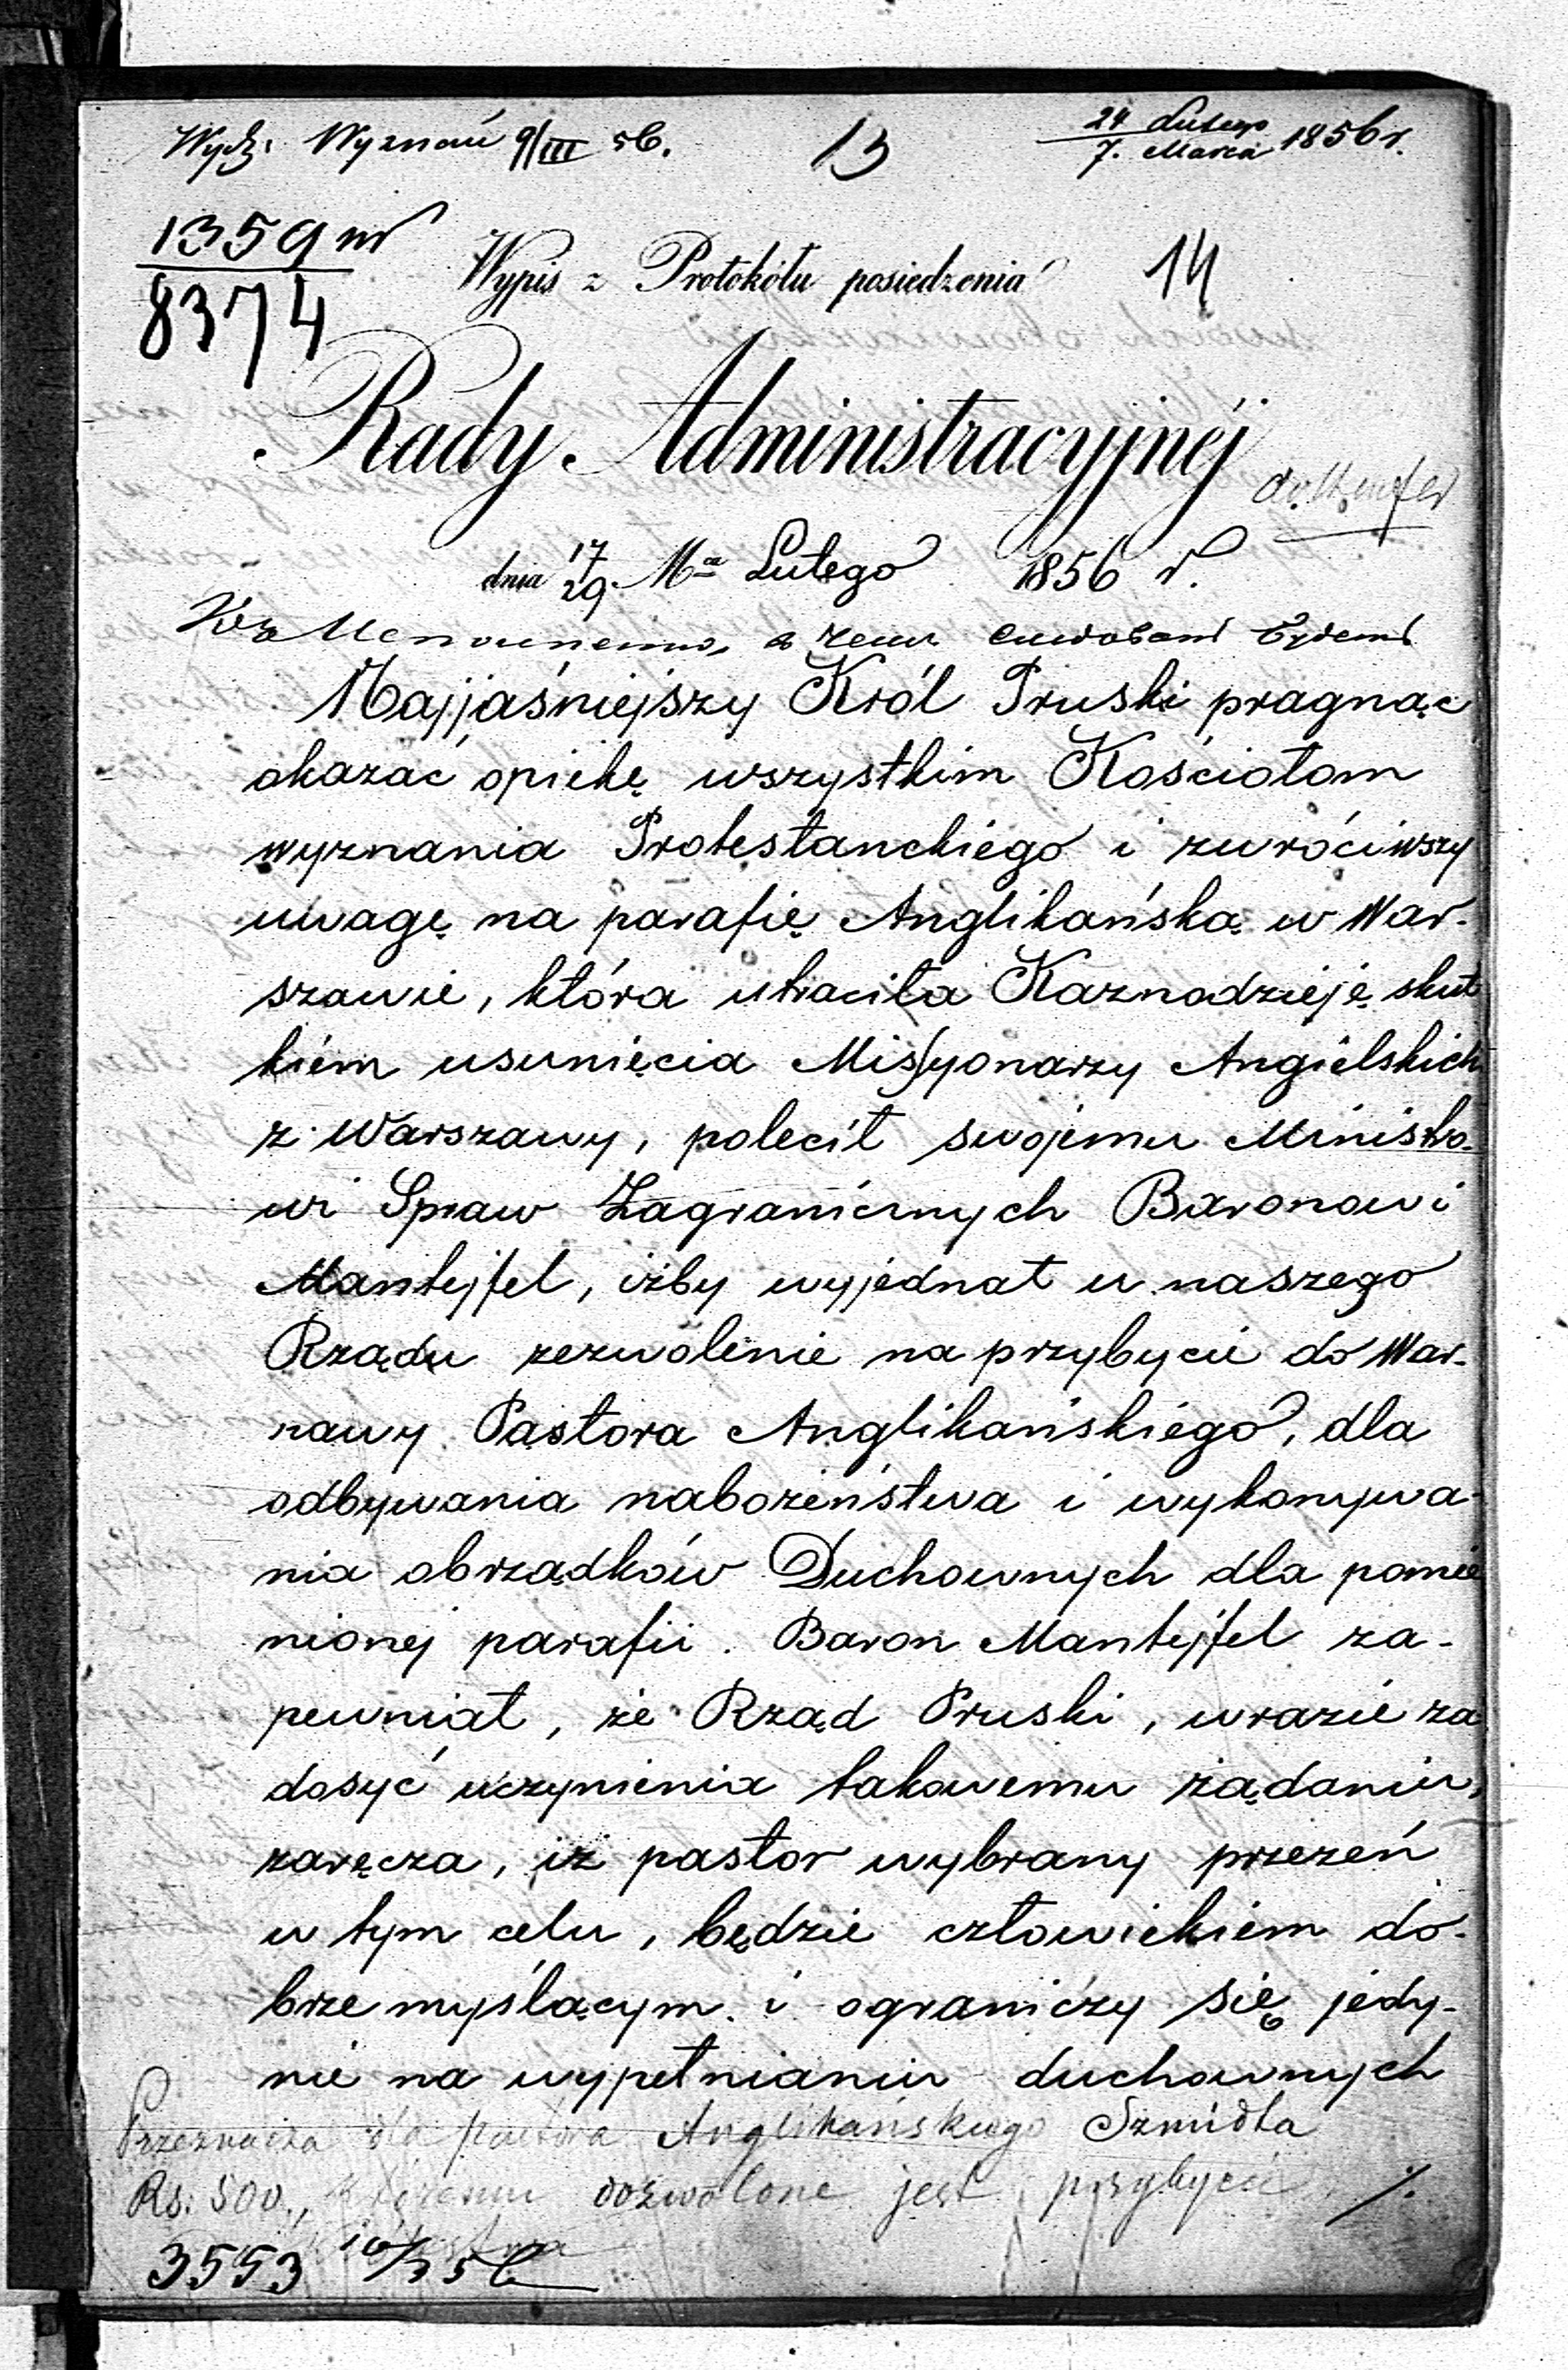 Wydz. Wyznań 9/III 56.
13
24 Lutego
7. Marca 1856 r.
1359
8374
Wypis z Protokółu posiedzenia
14
Rady Administracyjnéj
dnia 17/29. Mca Lutego 1856 r.
Najjaśniejszy Król Pruski pragnąc
okazać opiekę wszystkim Kościołom
wyznania Protestanckiego i zwróciwszy
uwagę na parafię Anglikańską w War-
szawie, która utraciła Kaznodzieję skut
kiem usunięcia Missyonarzy Angielskich
z Warszawy, polecił swojemu Ministro-
wi Spraw Zagranicznych Baronowi
Mantejfel, iżby wyjednał u naszego
Rządu zezwolenie na przybycie do War-
zawy Pastora Anglikańskiego, dla
odbywania nabożeństwa i wykonywa-
nia obrządków Duchownych dla pomie
nionej parafii. Baron Mantejfel za-
pewniał, że Rząd Pruski, w razie za
dosyć uczynienia takowemu żądaniu,
zaręcza, iż pastor wybrany przezeń
w tym celu, będzie człowiekiem do-
brze myślącym i ograniczy się jedy-
nie na wypełnianiu duchownych
Przeznacza dla pastora Anglikańskiego Szmidta
Rs: 500., któremu dozwolone jest przybycie ./.
3553